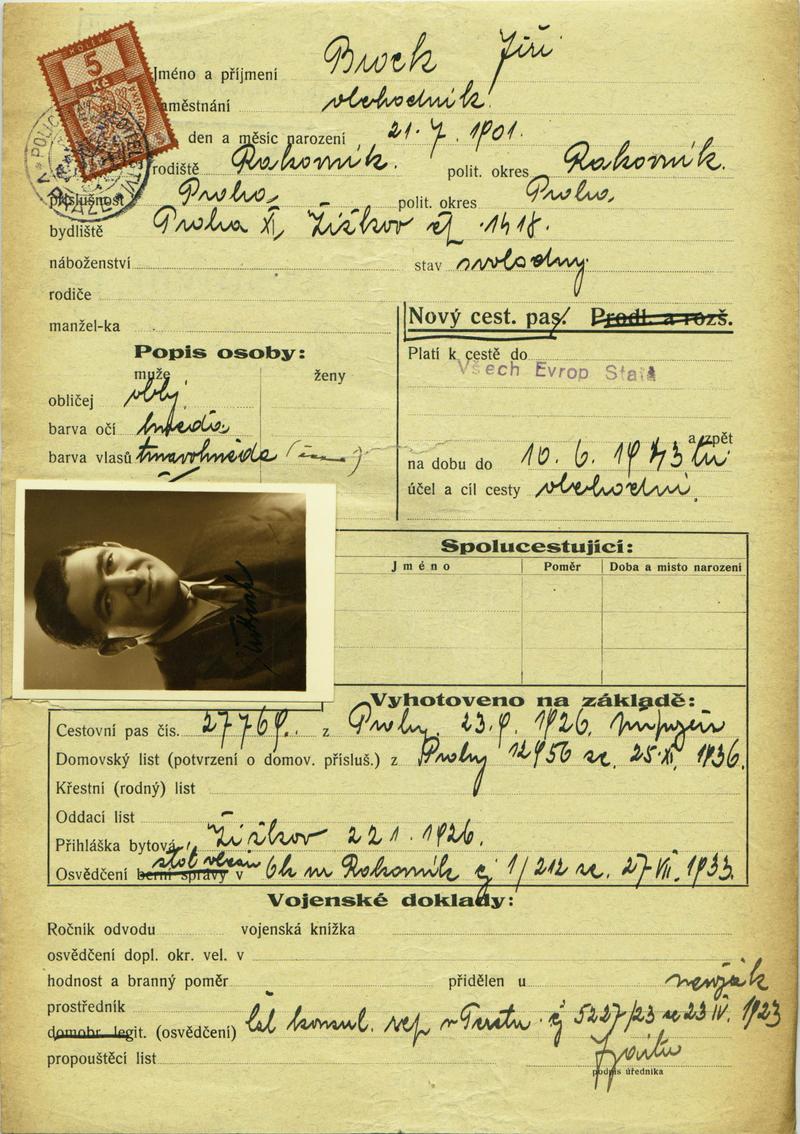 KOLEK
5
Kč
Jméno a příjmení Brock Jiří
zaměstnání obchodník
den a měsíc narození 21. 7. 1901.
rodiště Rakovník. polit. okres Rakovník.
příslušnost Praha, polit. okres Praha,
bydliště Praha XI, Žižkov čj. 1418.
náboženství stav svobodný
rodiče
manžel-ka
Nový cest. pas. Prodl. a rozš.
Popis osoby:
muže ženy
obličej oblý
barva očí hnědá
barva vlasů tmavohnědé
Platí k cestě do
Všech Evrop Států
a zpět
na dobu do 10. 6. 1943
účel a cíl cesty obchodní.
Spolucestující:
Jméno Poměr Doba a místo narození
Vyhotoveno na základě:
Cestovní pas čís. 27769. z Prahy 23.9. 1926.
Domovský list (potvrzení o domov. přísluš.) z Prahy 12956 ze 25.XI. 1936.
Křestní (rodný) list
Oddací list
Přihláška bytová Žižkov 22 1. 1926.
Osvědčení berní správy v Rakovník čj 1/212 ze. 27.VII. 1933.
Vojenské doklady:
Ročník odvodu vojenská knížka
osvědčení dopl. okr. vel. v
hodnost a branný poměr přidělen u nevoják
prostředník
domobr. legit. (osvědčení) čsl konsul. rep v Terstu čj 5227/23 ze 23 IV. 1923
propouštěcí list
podpis úředníka